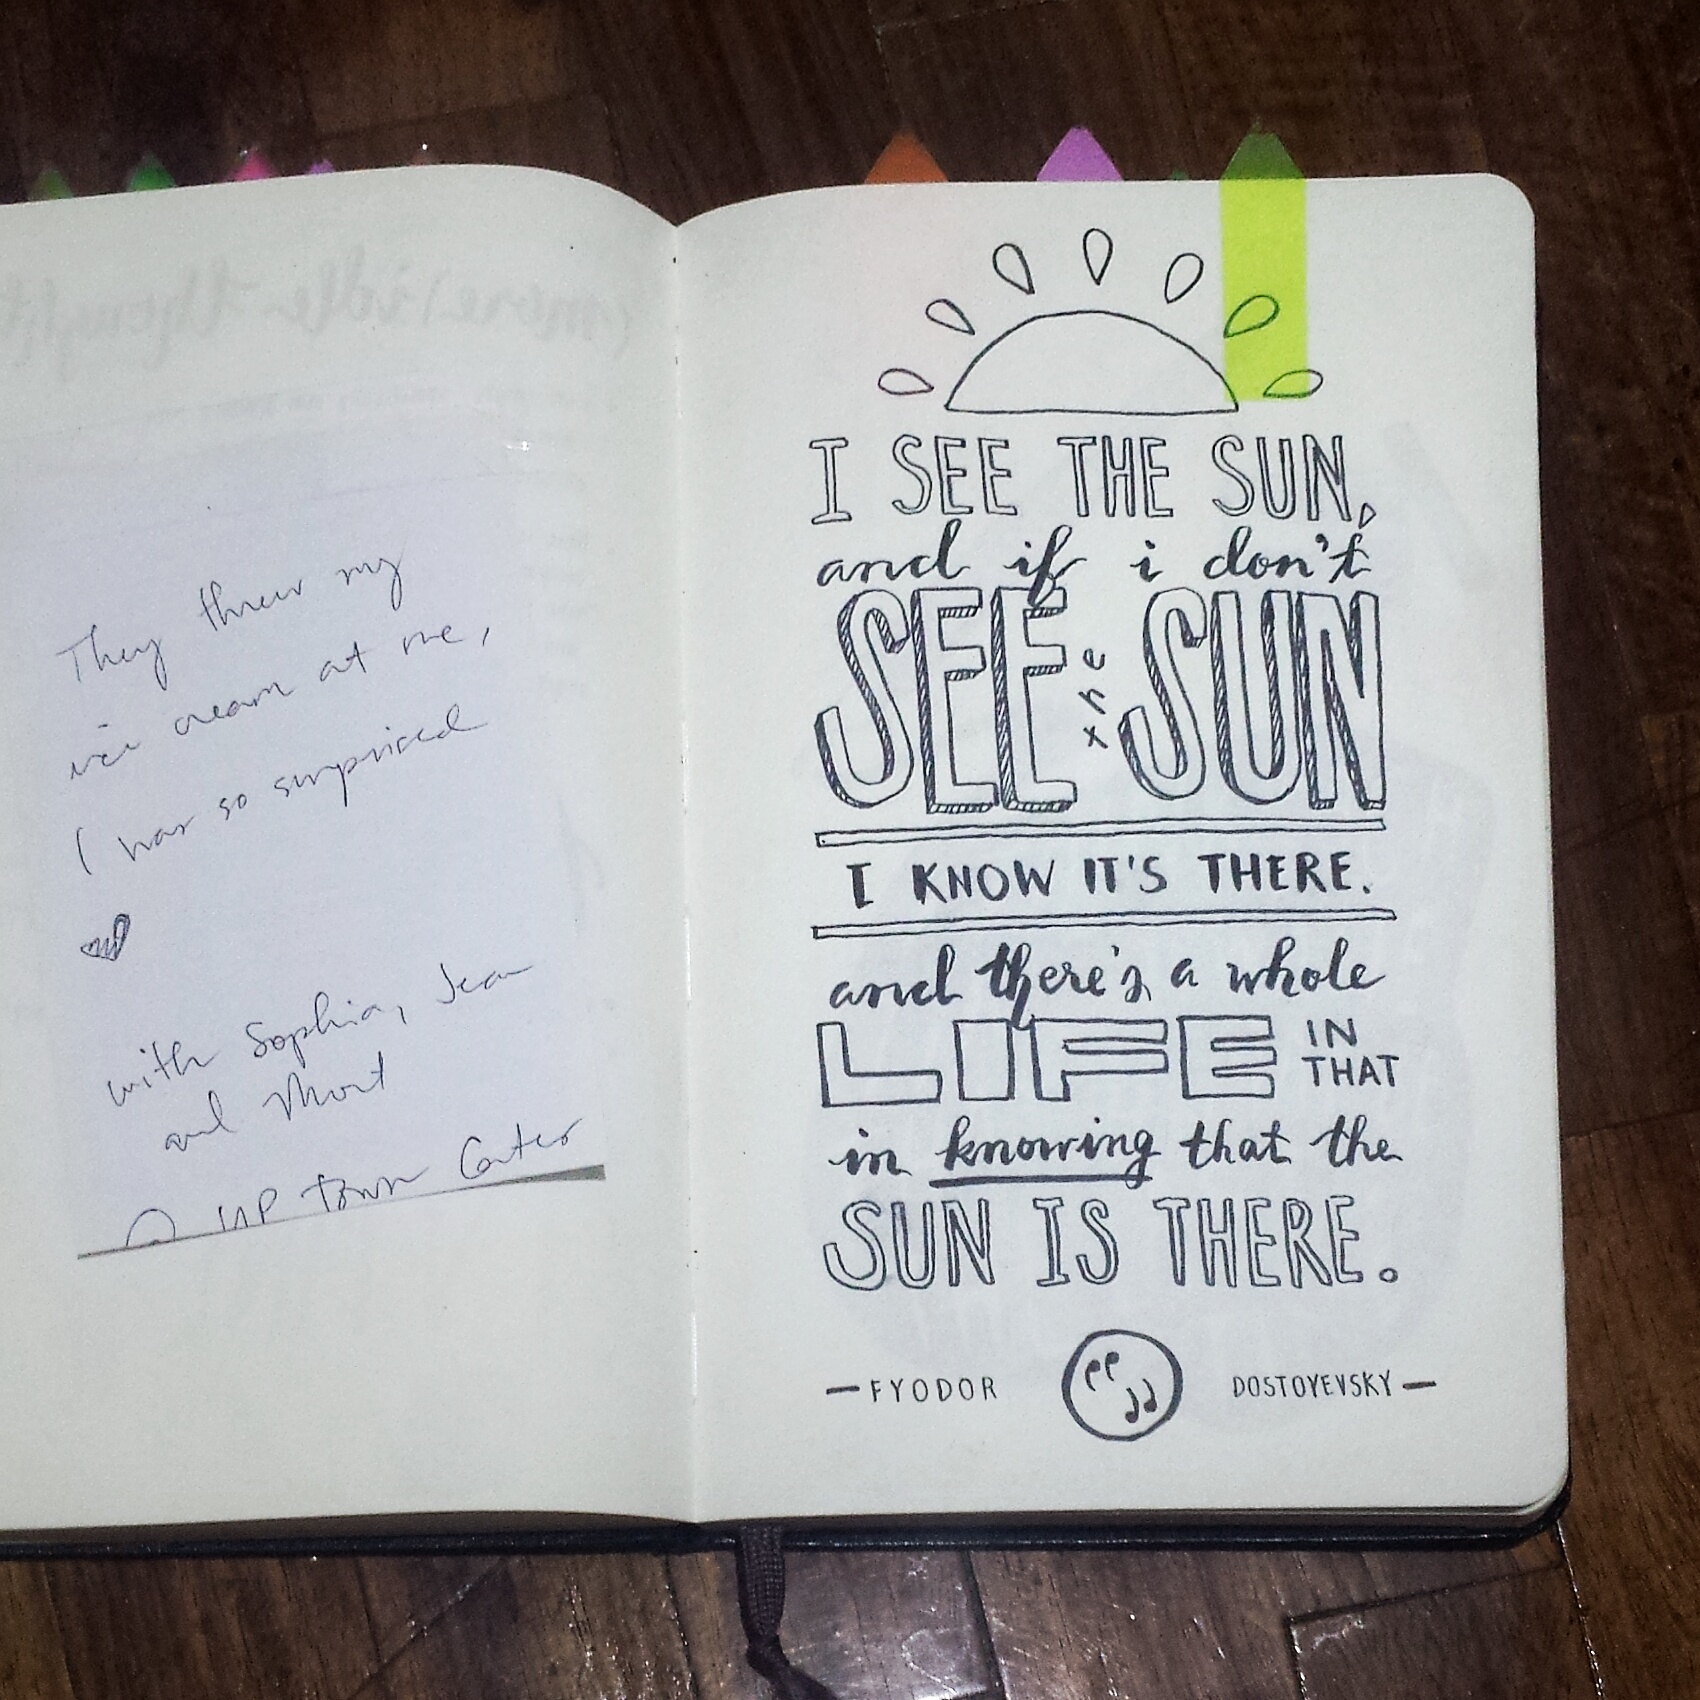 They threw my
ice cream at me,
I was so surprised
with Sophia, Jean
and Mort
@ UP Town Center
I SEE THE SUN,
and if i don't
SEE the SUN
I KNOW IT'S THERE.
and there's a whole
LIFE IN THAT
in knowing that the
SUN IS THERE.
— FYODOR DOSTOYEVSKY —